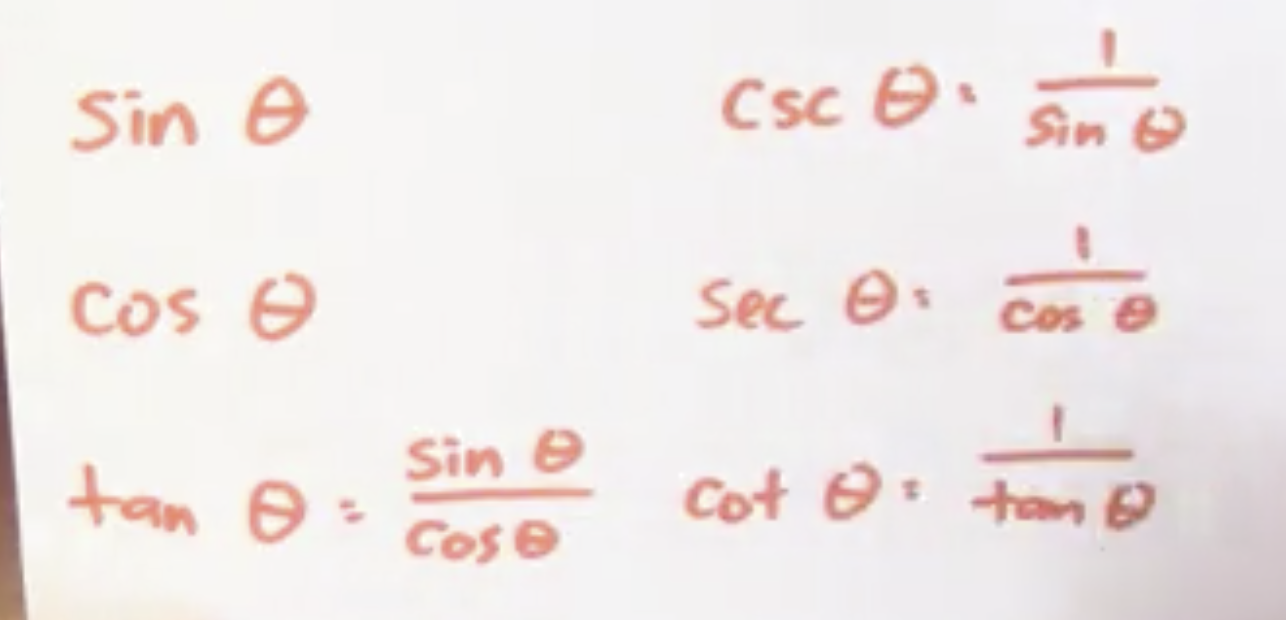 sin θ
csc θ = 1/sin θ
cos θ
sec θ = 1/cos θ
tan θ = sin θ/cos θ
cot θ = 1/tan θ